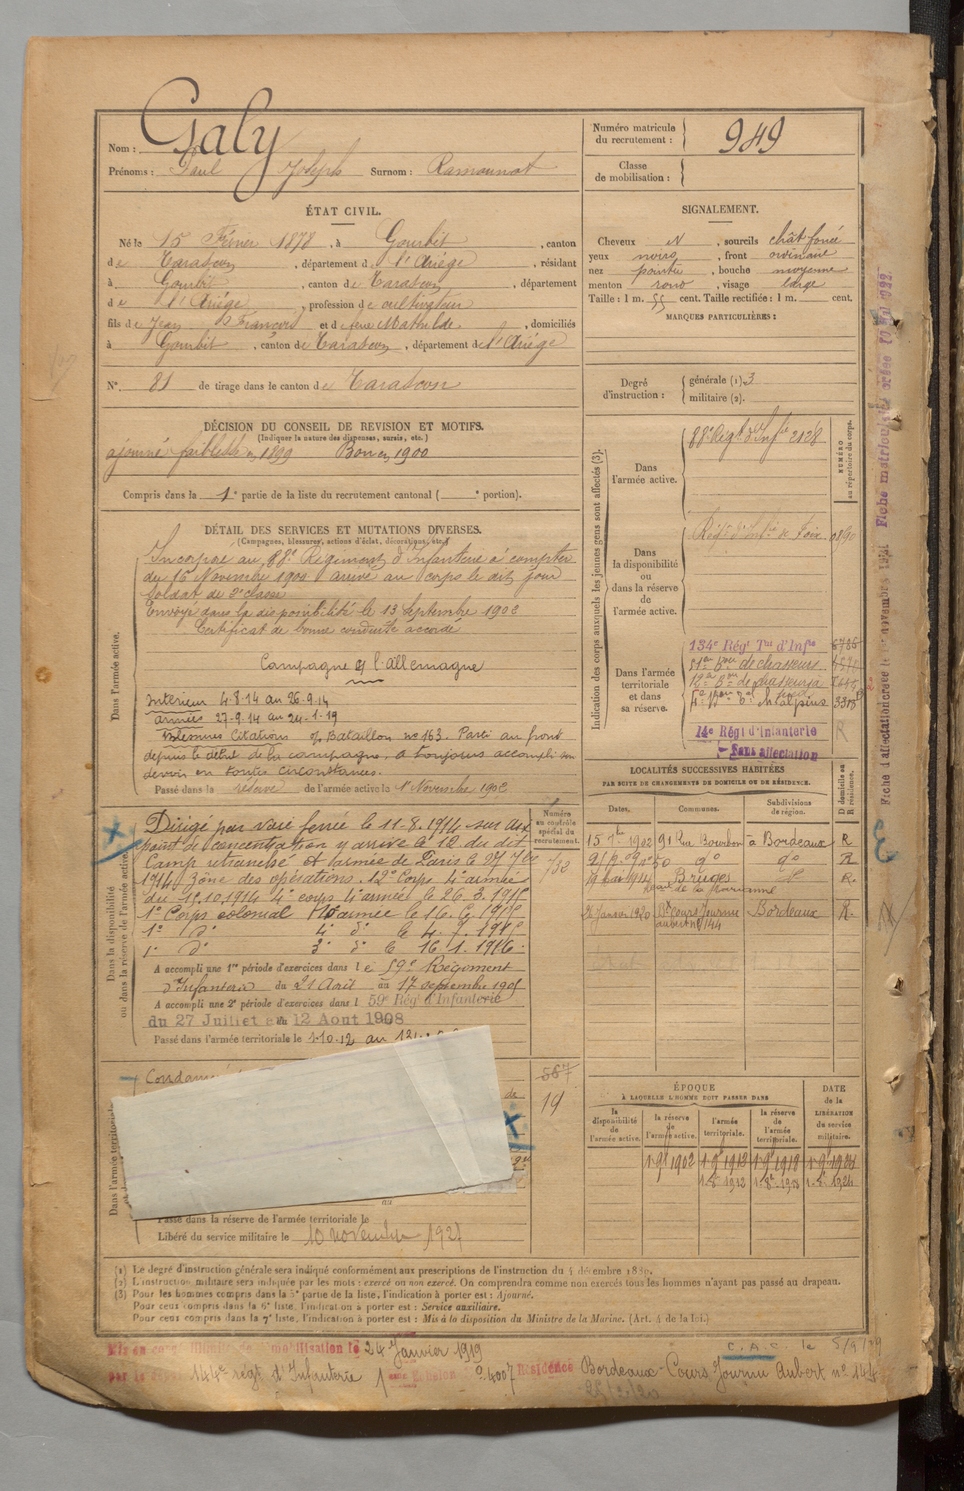 Nom : Galy
Prénoms : Paul Joseph Surnom : Ramounot
Numéro matricule du recrutement : 949
Classe de mobilisation :
ÉTAT CIVIL.
Né le 15 Février 1878, à Gourbit, canton
de Tarascon, département de l'Ariège, résidant
à Gourbit, canton de Tarascon, département
de l'Ariège, profession de cultivateur
fils de Jean François et de Mathilde, domiciliés
à Gourbit, canton de Tarascon, département de l'Ariège
N° 81 de tirage dans le canton de Tarascon
SIGNALEMENT.
Cheveux N, sourcils chât foncé
yeux noirs, front ordinaire
nez pointu, bouche moyenne
menton rond, visage large
Taille : 1 m. 55 cent. Taille rectifiée : 1 m. cent.
MARQUES PARTICULIÈRES :
Degré d'instruction : générale (1). 3
militaire (2).
DÉCISION DU CONSEIL DE REVISION ET MOTIFS.
(Indiquer la nature des dispenses, sursis, etc.)
ajourné faiblesse en 1899 Bon en 1900
Compris dans la 1e partie de la liste du recrutement cantonal ( e portion).
DÉTAIL DES SERVICES ET MUTATIONS DIVERSES.
(Campagnes, blessures, actions d'éclat, décorations, etc.)
Dans l'armée active.
Incorporé au 88e Régiment d'Infanterie à compter
du 16 Novembre 1900 arrivé au corps le dit jour
soldat de 2e classe
Envoyé dans la disponibilité le 13 Septembre 1902
Certificat de bonne conduite accordé
Campagne c/ l'allemagne
Intérieur 4.8.14 au 26.9.14
armées 27-9.14 au 24-1-19
Citations Bataillon no 163. Parti au front
depuis le début de la campagne, a toujours accompli son
devoir en toutes circonstances.
Passé dans la réserve de l'armée active le 1er Novembre 1902
Indication des corps auxquels les jeunes gens sont affectés (3).
NUMÉRO au répertoire du corps.
Dans l'armée active.
88e Régt d'Infie 2128
Dans la disponibilité ou dans la réserve de l'armée active.
Régt d'Infie de Foix
Dans l'armée territoriale et dans sa réserve.
134e Régt Tal d'Infie
51e Bon de chasseurs
12e Bon de chasseurs
14e Régt d'Infanterie
Sans affectation
Dans la disponibilité ou dans la réserve de l'armée active.
Dirigé par voie ferrée le 11-8-1914 sur
point de concentration y arrivé le 12 du dit
Camp retranché et armée de Paris le 27 7bre
1914 zône des opérations. 12e Corps 4e armée
du 1er.10.1914 4e corps 4e armée le 26.3.1915
1er Corps colonial 10e armée le 16.6.1915
1er do 4e do le 4.7.1915
1er do 3e do le 16.1.1916
A accompli une 1re période d'exercices dans le 59e Régiment
d'Infanterie du 21 Août au 17 septembre 1905
A accompli une 2e période d'exercices dans l 59e Régt d'Infanterie
du 27 Juillet au 12 Aout 1908
Passé dans l'armée territoriale le 1.10.12
Numéro au contrôle spécial du recrutement.
732
587
19
LOCALITÉS SUCCESSIVES HABITÉES
PAR SUITE DE CHANGEMENTS DE DOMICILE OU DE RÉSIDENCE.
D domicile ou R résidence.
Dates. Communes. Subdivisions de région.
1902 91 Rue Bourbon à Bordeaux R
50 do do R
1914 Bruges do R.
24 janvier 1920 Bx cours Journu Aubert no 144 Bordeaux R.
Dans l'armée territoriale
Condamné
Passé dans la réserve de l'armée territoriale le
Libéré du service militaire le 10 novembre 1927
ÉPOQUE
À LAQUELLE L'HOMME DOIT PASSER DANS
DATE de la LIBÉRATION du service militaire.
la disponibilité de l'armée active. la réserve de l'armée active. l'armée territoriale. la réserve de l'armée territoriale.
(1) Le degré d'instruction générale sera indiqué conformément aux prescriptions de l'instruction du 4 décembre 1889.
(2) L'instruction militaire sera indiquée par les mots : exercé ou non exercé. On comprendra comme non exercés tous les hommes n'ayant pas passé au drapeau.
(3) Pour les hommes compris dans la 5e partie de la liste, l'indication à porter est : Ajourné.
Pour ceux compris dans la 6e liste, l'indication à porter est : Service auxiliaire.
Pour ceux compris dans la 7e liste, l'indication à porter est : Mis à la disposition du Ministre de la Marine. (Art. 4 de la loi.)
Mis en congé illimité de démobilisation le 24 Janvier 1919
144e régt d'Infanterie Résidence Bordeaux Cours Journu Aubert no 144
C.A.C. le 5/9/29